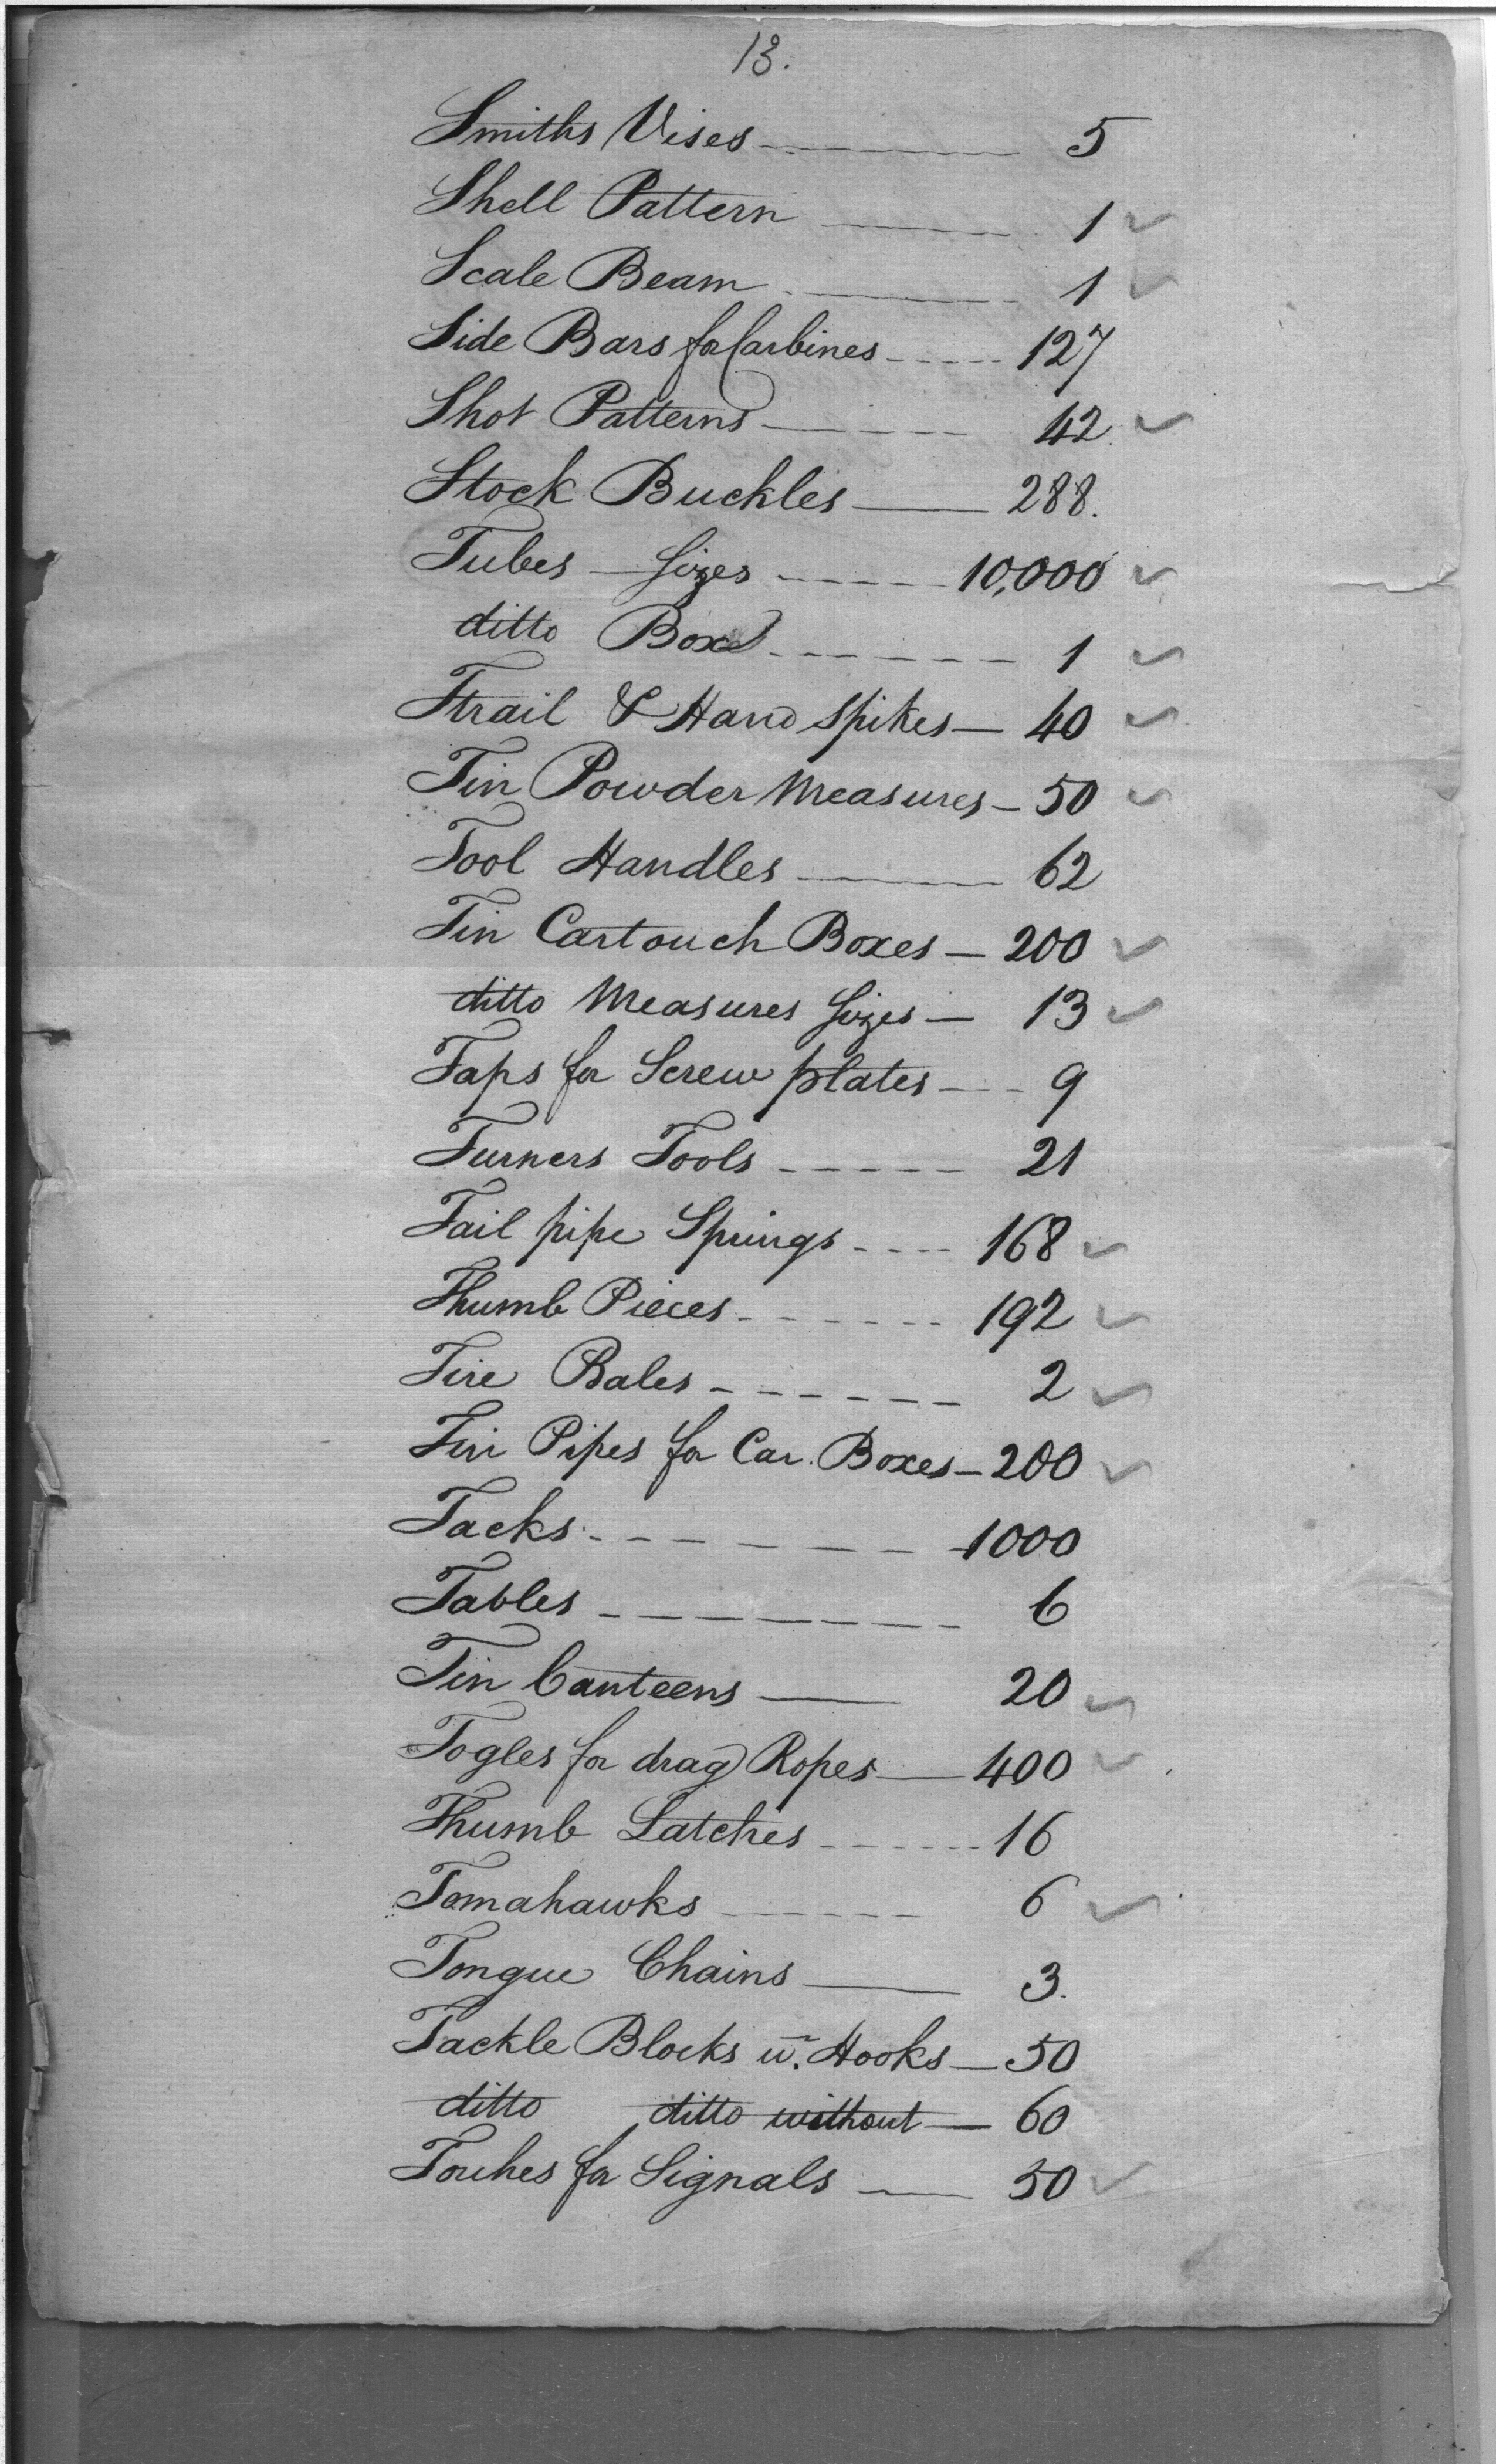 13.
Smiths Vises 5
Shell Pattern 1 ✓
Scale Beam 1 ✓
Side Bars for Carbines 127
Shot Patterns 42 ✓
Stock Buckles 288.
Tubes Sizes 10,000 ✓
ditto Box 1 ✓
Trail & Hand Spikes 40 ✓
Tin Powder Measures 50 ✓
Tool Handles 62
Tin Cartouch Boxes 200 ✓
ditto Measures Sizes 13 ✓
Taps for Screw plates 9
Turners Tools 21
Tail pipe Springs 168 ✓
Thumb Pieces 192 ✓
Tire Bales 2 ✓
Tin Pipes for Car. Boxes 200 ✓
Tacks 1000
Tables 6
Tin Canteens 20 ✓
Togles for drag Ropes 400 ✓
Thumb Latches 16
Tomahawks 6 ✓
Tongue Chains 3.
Tackle Blocks w. Hooks 50
ditto ditto without 60
Touhes for Signals 50 ✓